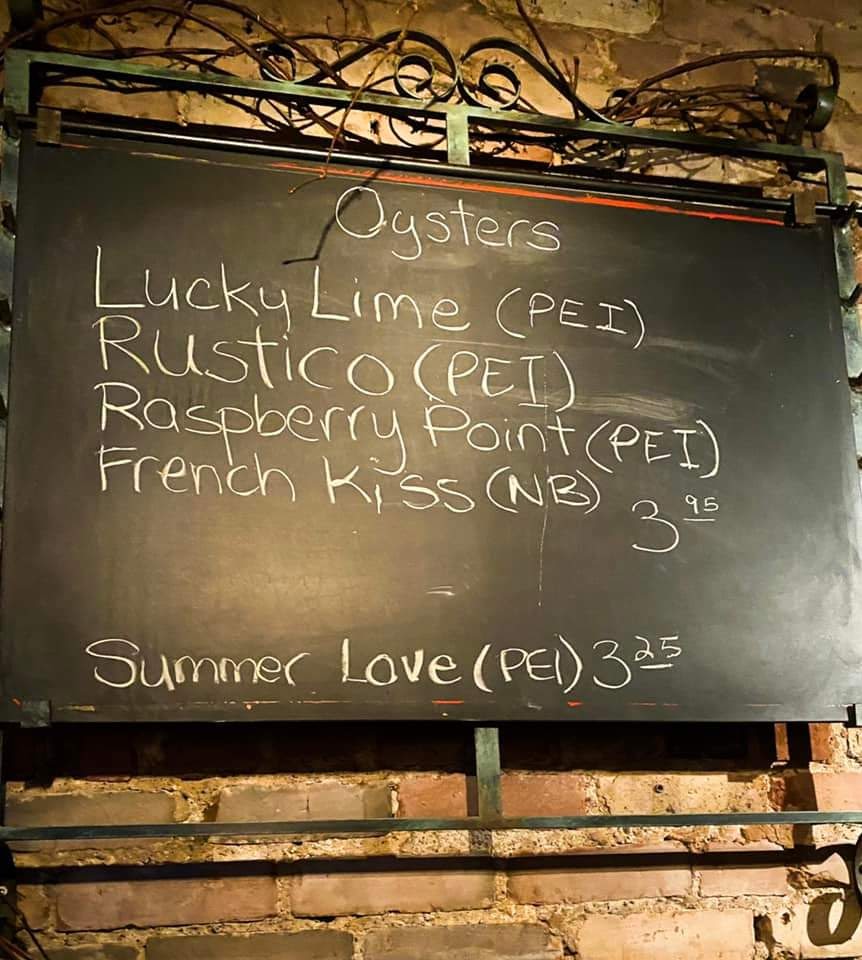 Oysters
Lucky Lime (PEI)
Rustico (PEI)
Raspberry Point (PEI)
French Kiss (NB) 3 95
Summer Love (PEI) 3 25